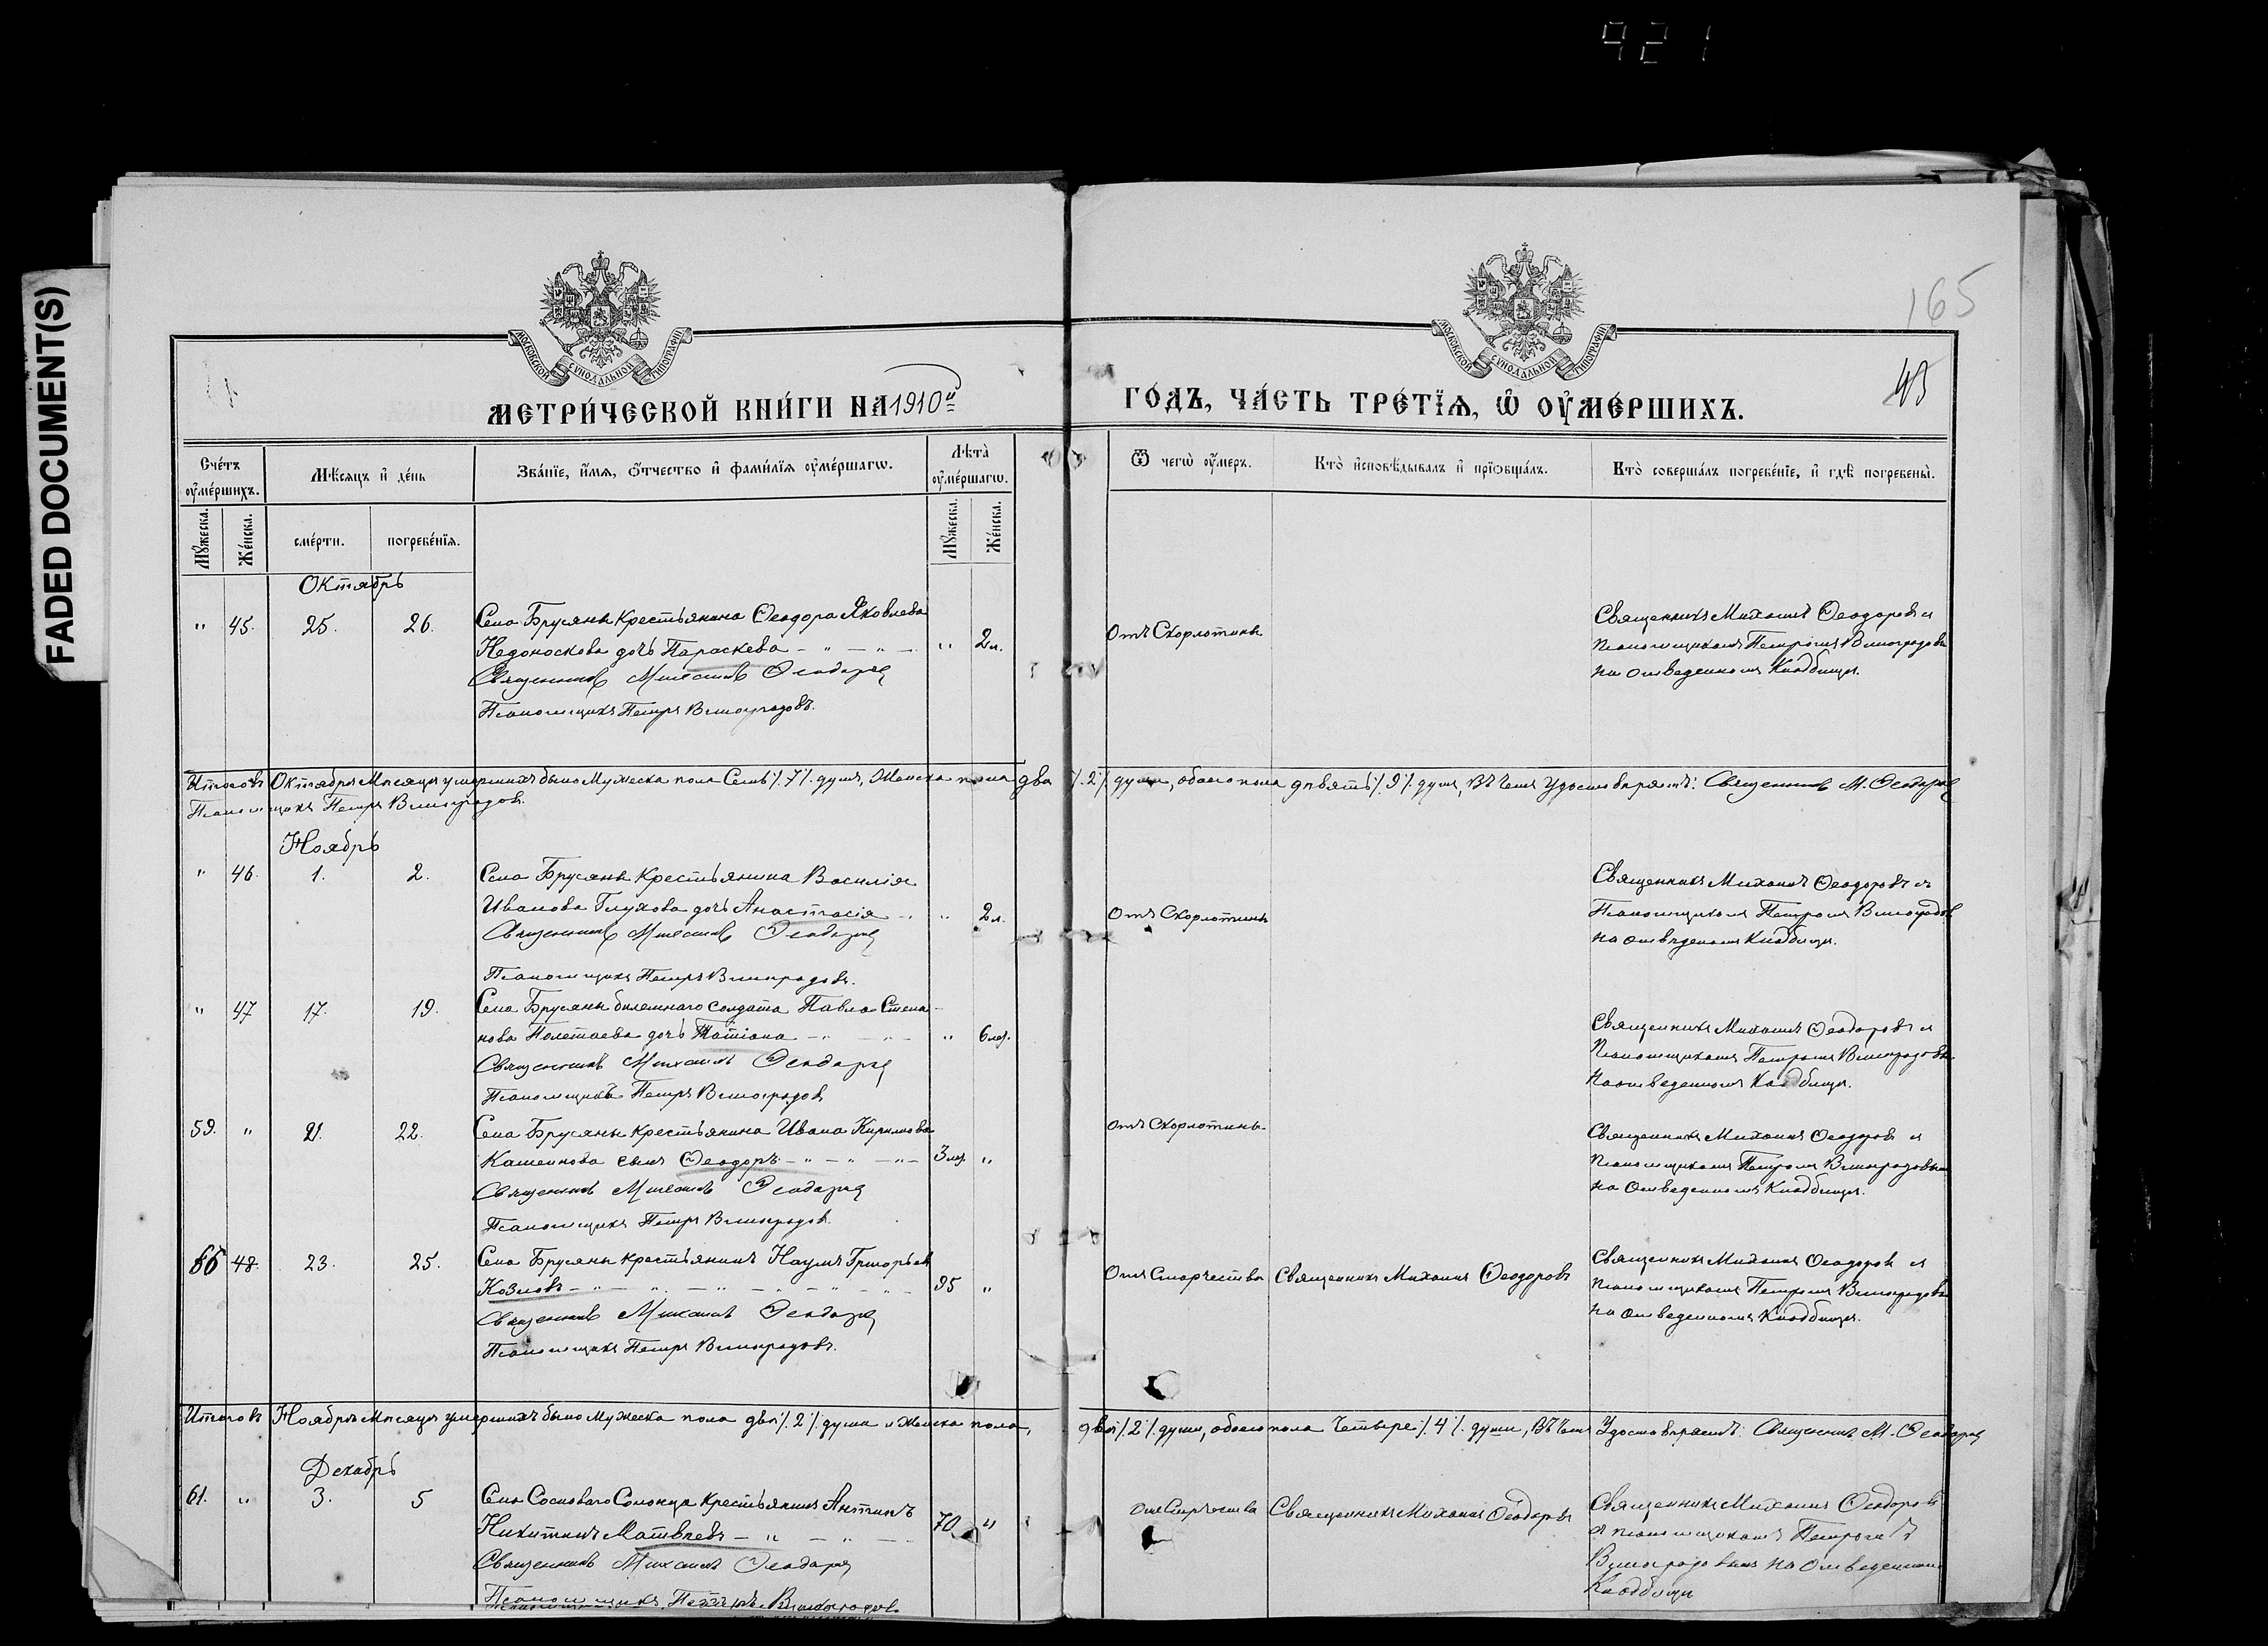 921
FADED DOCUMENT(S)
165
43
МОСКОВСКОЙ СѴНОДАЛЬНОЙ ТИПОГРАФІИ
МОСКОВСКОЙ СѴНОДАЛЬНОЙ ТИПОГРАФІИ
МЕТРИ́ЧЕСКОЙ КНИ́ГИ НА 1910й ГО́ДЪ, ЧА́СТЬ ТРЕ́ТЇѦ, Ѡ҆ ОУ҆МЕ́РШИХЪ.
Сче́тъ оу҆ме́ршихъ.
Мѣ́сяцъ и҆ де́нь
Зва́нїе, и҆́мѧ, ѻ҆́тчество и҆ фами́лїѧ оу҆ме́ршагѡ.
Лѣта̀ оу҆ме́ршагѡ.
Ѿ чегѡ̀ оу҆́меръ.
Кто̀ и҆сповѣ́дывалъ и҆ прїѡбща́лъ.
Кто̀ соверша́лъ погребе́нїе, и҆ гдѣ̀ погребены̀.
Мꙋ́жеска. Же́нска. сме́рти. погребе́нїѧ. Мꙋ́жеска. Же́нска.
Октябрь
" 45. 25. 26. Села Брусяны крестьянина Ѳеодора Яковлева
Недоноскова дочь Параскева - " - " - " 2 л.
Священникъ Михаилъ Ѳеодоровъ
Псаломщикъ Петръ Виноградовъ.
Отъ Скорлотины
Священникъ Михаилъ Ѳеодоровъ и
псаломщикомъ Петромъ Виноградовы
на отведенномъ Кладбищѣ.
Итого въ Октябрѣ Мѣсяцѣ умершихъ было Мужеска пола Семь ./.7./. душъ, Женска пола два ./.2./. души, обоего пола девять ./.9./. душъ, Въ чемъ Удостовѣряетъ: Священникъ М. Ѳеодоровъ
Псаломщикъ Петръ Виноградовъ.
Ноябрь
" 46. 1. 2. Села Брусяны Крестьянина Василія
Иванова Глухова дочь Анастасія - " " 2 л.
Священникъ Михаилъ Ѳеодоровъ
Псаломщикъ Петръ Виноградовъ.
Отъ Скорлотины
Священникъ Михаилъ Ѳеодоровъ и
Псаломщикомъ Петромъ Виноградов
на отведенномъ Кладбищѣ.
" 47 17. 19. Села Брусяны билетнаго солдата Павла Степа-
нова Полетаева дочь Татіана - " - " - " 6
Священникъ Михаилъ Ѳеодоровъ
Псаломщикъ Петръ Виноградовъ
Священникъ Михаилъ Ѳеодоровъ и
Псаломщикомъ Петромъ Виноградовы
на отведенномъ Кладбищѣ.
59. " 21. 22. Села Брусяны крестьянина Ивана Кирилова
сынъ Ѳеодоръ - " - " - " - 3 "
Священникъ Михаилъ Ѳеодоровъ
Псаломщикъ Петръ Виноградовъ.
Отъ Скорлотины
Священникъ Михаилъ Ѳеодоровъ и
псаломщикомъ Петромъ Виноградовым
на отведенномъ Кладбищѣ.
48. 23. 25. Села Брусяны крестьянинъ Наумъ Григорьев
Козловъ - " - " - " - " - " - " 95 "
Священникъ Михаилъ Ѳеодоровъ
Псаломщикъ Петръ Виноградовъ.
Отъ Старчества
Священникъ Михаилъ Ѳеодоровъ
Священникъ Михаилъ Ѳеодоровъ и
псаломщикомъ Петромъ Виноградовы
на отведенномъ Кладбищѣ.
Итого въ Ноябрѣ Мѣсяцѣ умершихъ было мужеска пола двѣ ./.2./. души и Женска пола, двѣ ./.2./. души, обоего пола Четыре ./.4./. души, Въ чемъ Удостовѣряетъ: Священникъ М. Ѳеодоровъ
Декабрь
61. " 3. 5 Села Сосноваго Солонца Крестьянинъ Антипъ
Никитинъ Матвѣевъ - " - " - 70 "
Священникъ Михаилъ Ѳеодоровъ
Псаломщикъ Петръ Виноградовъ
отъ Старчества
Священникъ Михаилъ Ѳеодоровъ
Священникъ Михаилъ Ѳеодоровъ
и псаломщикомъ Петромъ
Виноградовымъ на отведенномъ
Кладбищѣ